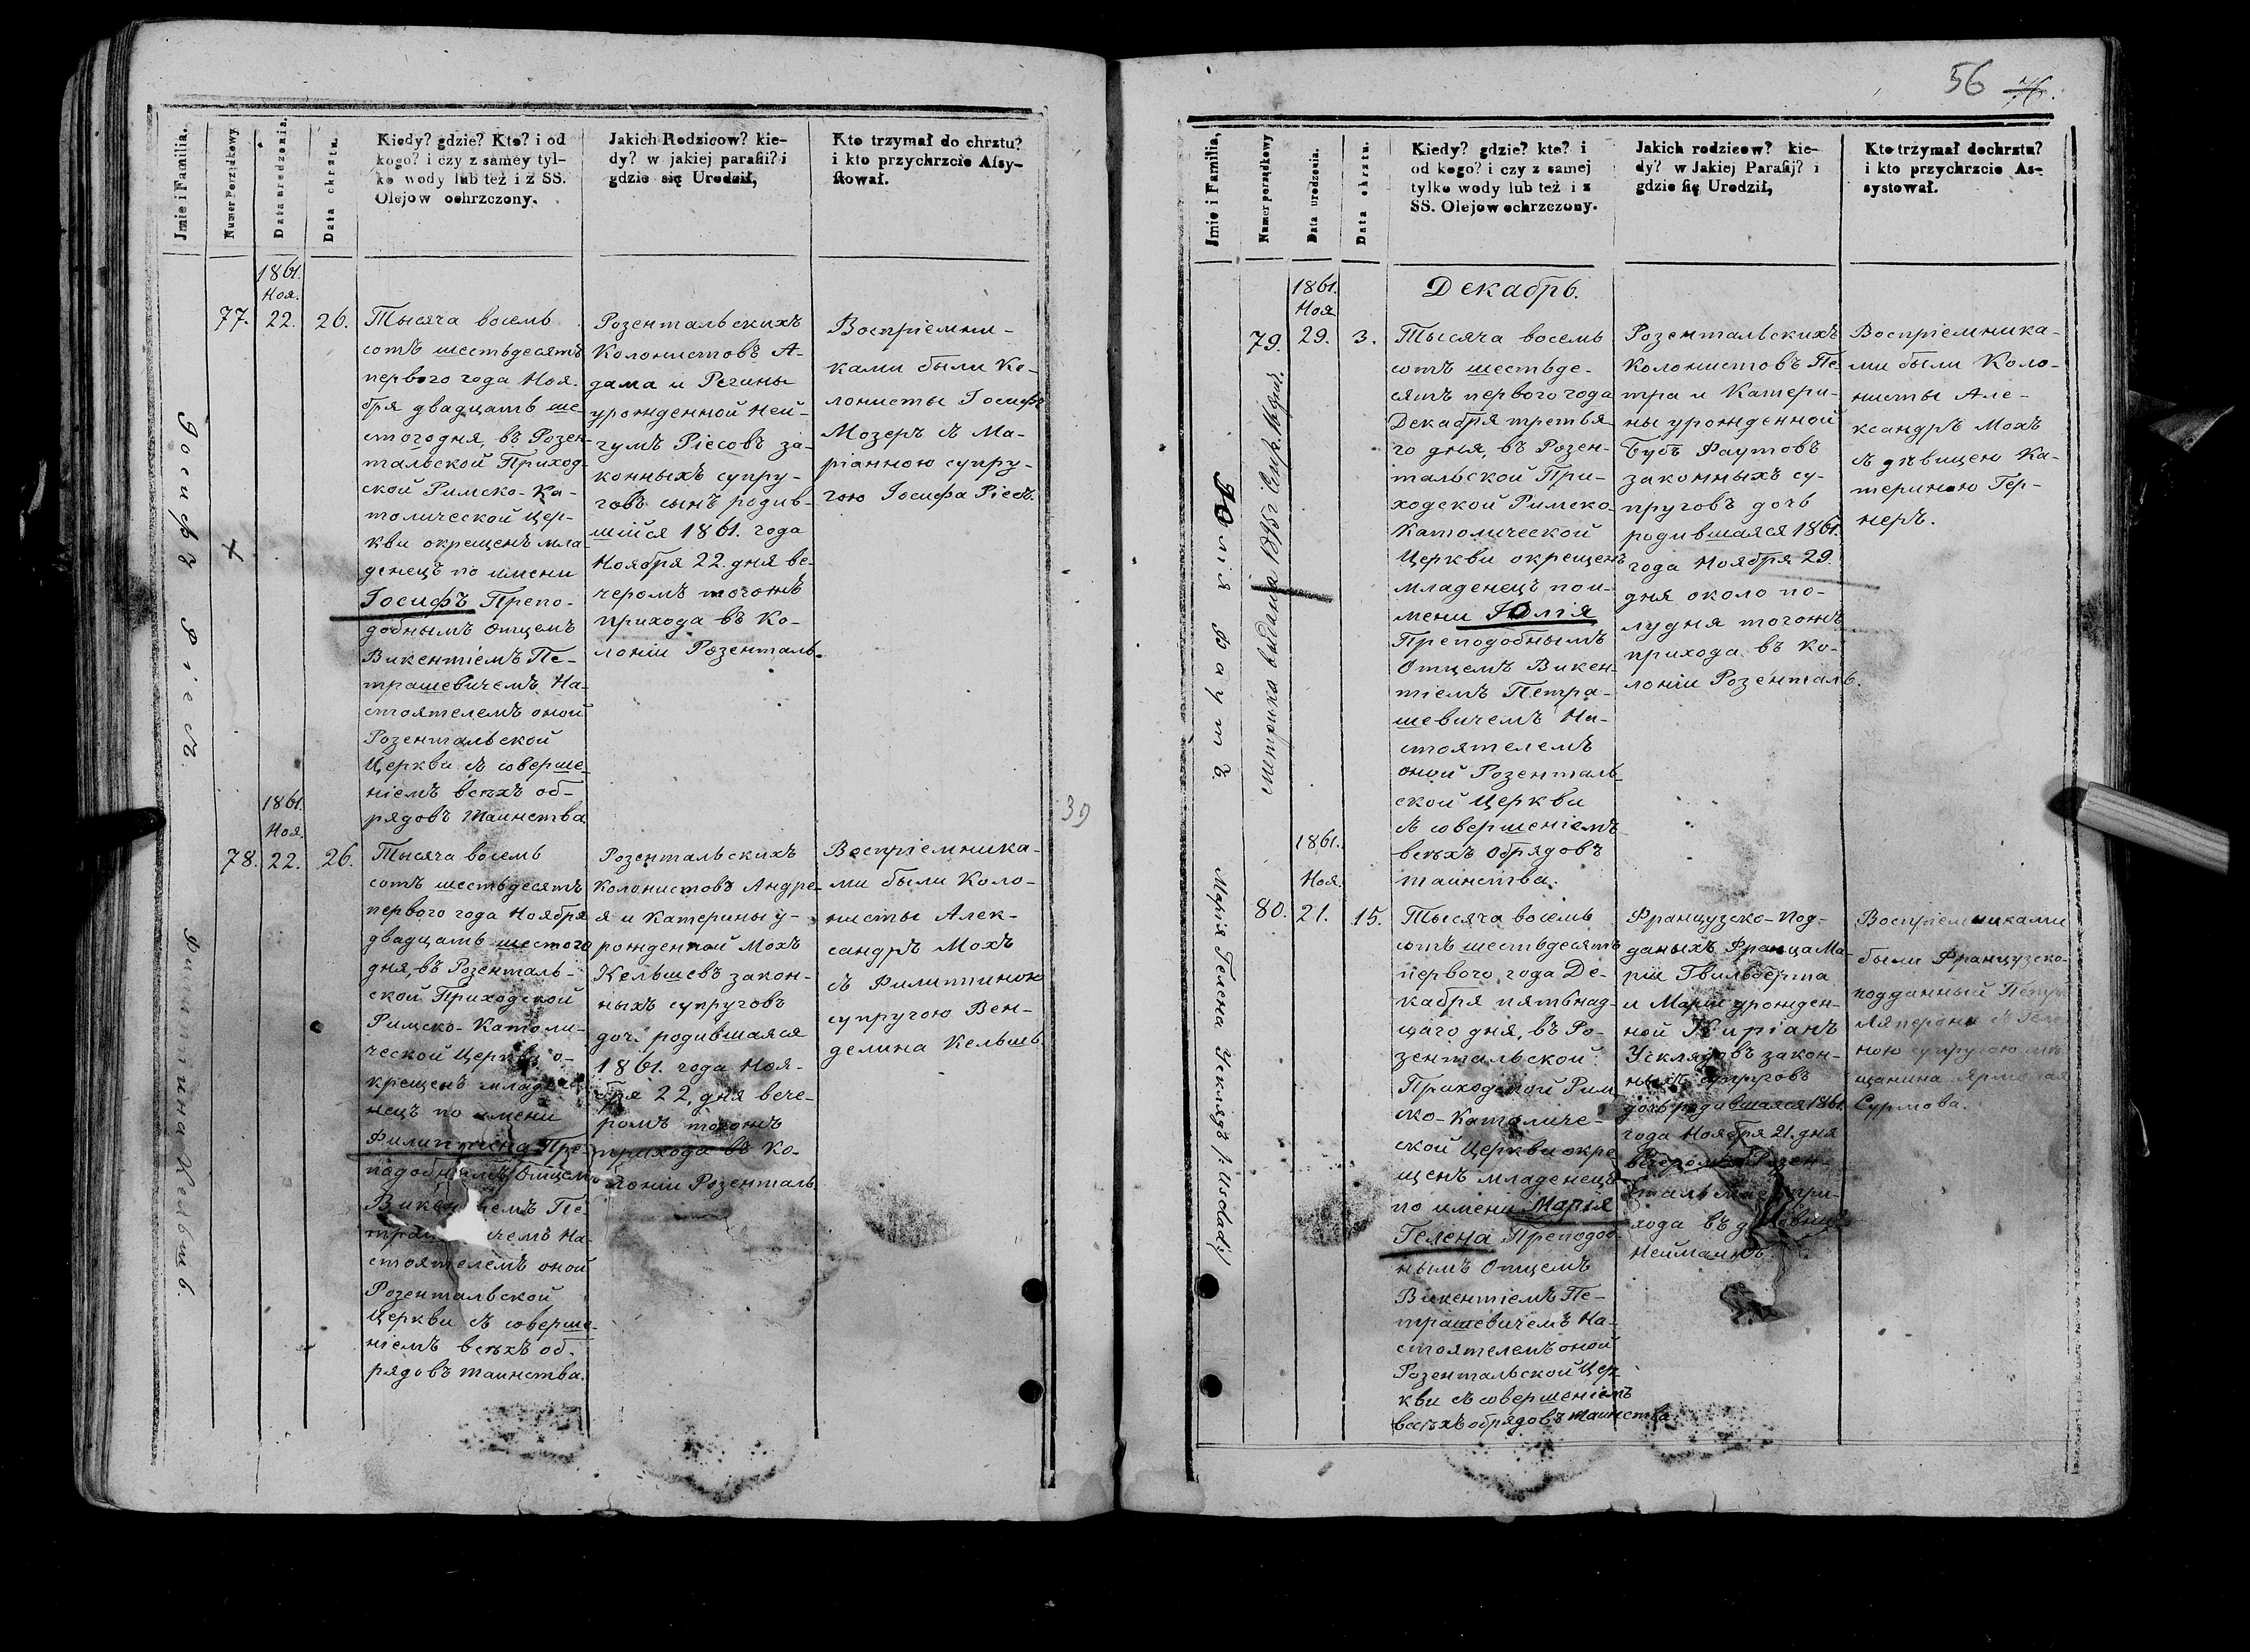 Jmie i Familia.
Numer Porządkowy
Data urodzenia.
Data chrztu.
Kiedy? gdzie? Kto? i od
kogo? i czy z samey tyl-
ko wody lub też i z SS.
Olejow ochrzczony.
Jakich Rodzicow? kie-
dy? w jakiej parafii? i
gdzie się Urodził,
Kto trzymał do chrztu?
i kto przychrzcie Assy-
stował.
Іосифъ Ріесъ.
77.
1861.
Ноя.
22.
26.
Тысяча восемь
сотъ шестьдесятъ
первого года Ноя-
бря двадцать ше-
стогодня, въ Розен-
тальской Приход-
ской Римско-Ка-
толической Цер-
кви окрещенъ мла-
денецъ по имени
Іосифъ Препо-
добнымъ Отцемъ
Викентіемъ Пе-
трашевичемъ На-
стоятелемъ оной
Розентальской
Церкви съ соверше-
ніемъ всѣхъ об-
рядовъ таинства
Розентальскихъ
Колонистовъ А-
дама и Регины
урожденной Ней-
гумъ Ріесовъ за-
конныхъ супру-
говъ сынъ родив-
шійся 1861. года
Ноября 22. дня ве-
черомъ тогожъ
прихода въ Ко-
лоніи Розенталь.
Воспріемни-
ками были Ко-
лонисты Іосифъ
Мозеръ съ Ма-
ріанною супру-
гою Іосифа Ріесъ.
Филиппина Кельшъ.
78.
1861.
Ноя.
22.
26.
Тысяча восемь
сотъ шестьдесятъ
первого года Ноября
двадцать шестого
дня, въ Розенталь-
ской Приходской
Римско-Католи-
ческой Церкви о-
крещенъ младе-
нецъ по имени
Филиппина Пре-
подобнымъ Отцемъ
Пе-
На-
стоятелемъ оной
Розентальской
Церкви съ соверше-
ніемъ всѣхъ об-
рядовъ таинства.
Розентальскихъ
колонистовъ Андре-
я и Катерины у-
рожденной Мохъ
Кельшевъ закон-
ныхъ супруговъ
доч. родившаяся
1861. года Ноя-
бря 22, дня вече-
ромъ тогожъ
прихода въ Ко-
лоніи Розенталь.
Воспріемника-
ми были Коло-
нисты Алек-
сандръ Мохъ
съ Филиппиною
супругою Вен-
делина Кельшъ.
39
56 76.
Jmie i Familia,
Numer porządkowy
Data urodzenia.
Data chrztu.
Kiedy? gdzie? kto? i
od kogo? i czy z samej
tylko wody lub też i z
SS. Olejow ochrzczony.
Jakich rodzicow? kie-
dy? w Jakiej Parafij? i
gdzie się Urodził,
Kto trzymał dochrztu?
i kto przychrzcie As-
systował.
Юлія Фаутъ.
метрика выдана 1895г
1861.
Ноя
79.
29.
3.
Декабрь.
Тысяча восемь
сотъ шестьде-
сятъ первого года
Декабря третья-
го дня, въ Розен-
тальской При-
ходской Римско-
Католической
Церкви окрещенъ
младенецъ по и-
мени Юлія
Преподобнымъ
Отцемъ Викен-
тіемъ Петра-
шевичемъ На-
стоятелемъ
оной Розенталь-
ской Церкви
съ совершеніемъ
всѣхъ обрядовъ
таинства.
Розентальскихъ
колонистовъ Пе-
тра и Катери-
ны урожденной
Бубъ Фаутовъ
законныхъ су-
пруговъ дочь
родившаяся 1861.
года Ноября 29.
дня около по-
лудня тогожъ
прихода въ Ко-
лоніи Розенталь.
Воспріемника-
ми были Коло-
нисты Але-
ксандръ Мохъ
съ дѣвицею Ка-
териною Гер-
неръ.
Марія Гелена Усклядъ /: Uscladi:/
1861.
Ноя.
80.
21.
15.
Тысяча восемь
сотъ шестьдесятъ
первого года Де-
кабря пятьнад-
цаго дня, въ Ро-
зентальской
Приходской Рим-
ско-Католиче-
ской Церкви окре-
щенъ младенецъ
по имени Марія
Гелена Преподоб-
нымъ Отцемъ
Викентіемъ Пе-
трашевичемъ На-
стоятелемъ оной
Розентальской Цер-
кви съ совершеніемъ
всѣхъ обрядовъ таинства
Французско-Под-
даныхъ Франца Ма-
ріи Гвильберта
и Маріи урожден-
ной Киріанъ
Усклядовъ закон-
ныхъ супруговъ
дочь родившаяся 1861.
года Ноября 21. дня
вечеромъ Розен-
при-
хода въ
Нейманъ
Воспріемниками
были Французско-
подданный Петръ
съ Геле-
ною супругою мѣ-
щанина
Сурмова.